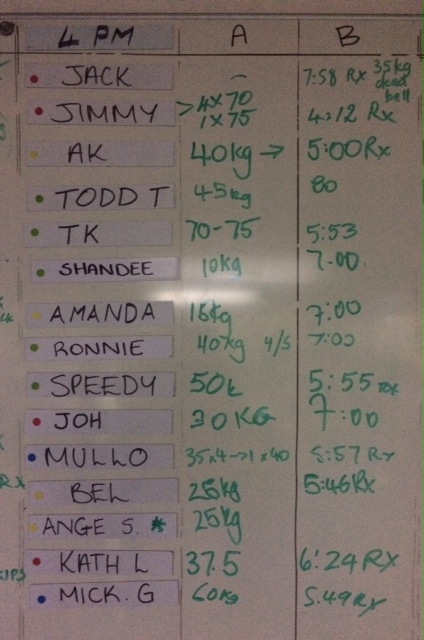 4 PM A B
JACK – 7:58 Rx 35kg dead bell
JIMMY > 4x70 1x75 4:12 Rx
AK 40kg → 5:00Rx
TODD T 45kg 80
TK 70-75 5:53
SHANDEE 10kg 7:00
AMANDA 15kg 7:00
RONNIE 40kg 4/5 7:00
SPEEDY 50k 5:55 Rx
JOH 30KG 7:00
MULLO 35x4->1x40 5:57 Rx
BEL 25kg 5:46Rx
ANGE S. * 25kg
KATH L 37.5 6:24 Rx
MICK.G 60kg 5.49Rx